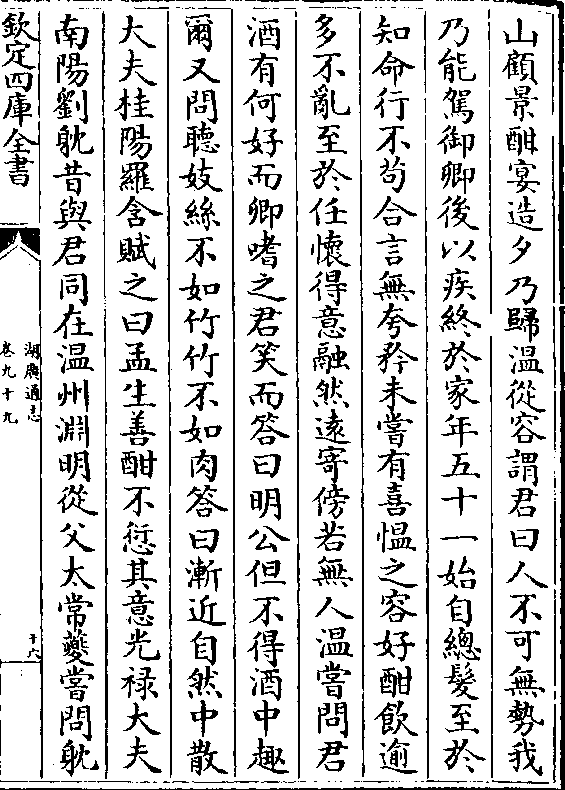 山顧景酣宴造夕乃歸溫從容謂君曰人不可無勢我
乃能駕御卿後以疾終於家年五十一始自總髮至於
知命行不苟合言無夸矜未嘗有喜愠之容好酣飲逾
多不亂至於任懷得意融然遠寄傍若無人溫嘗問君
酒有何好而卿嗜之君笑而答曰明公但不得酒中趣
爾又問聽妓絲不如竹竹不如肉答曰漸近自然中散
大夫桂陽羅含賦之曰孟生善酣不愆其意光禄大夫
南陽劉耽昔與君同在温州淵明從父太常夔嘗問耽
欽定四庫全書
湖廣通志
卷九十九
十六